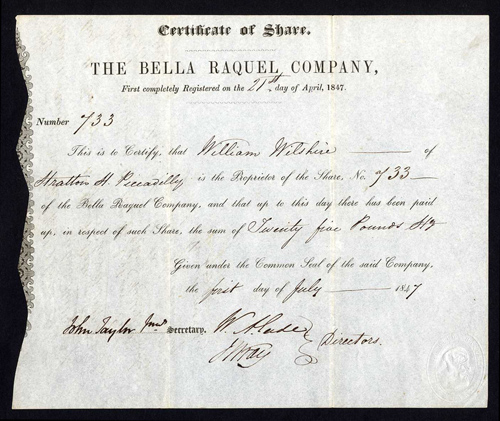 Certificate of Share.
THE BELLA RAQUEL COMPANY,
First completely Registered on the 21st day of April, 1847.
Number 733
This is to Certify, that William Wilshire of
Stratton St. Piccadilly is the Proprietor of the Share, No. 733
of the Bella Raquel Company, and that up to this day there has been paid
up, in respect of such Share, the sum of Twenty five Pounds Stg
Given under the Common Seal of the said Company,
the first day of July 1847
John Taylor Junr Secretary. W. A.
Directors.